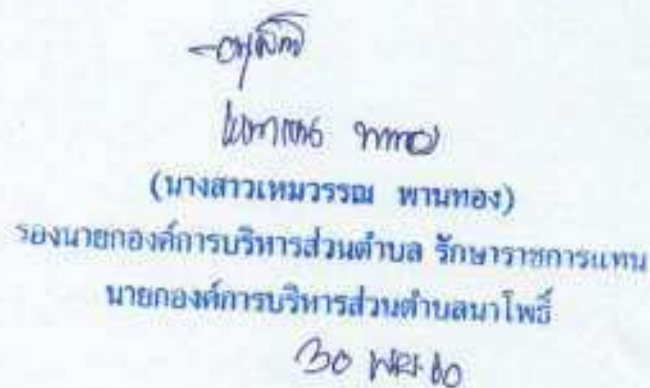 -อนุมัติ
(นางสาวเหมวรรณ พานทอง)
รองนายกองค์การบริหารส่วนตำบล รักษาราชการแทน
นายกองค์การบริหารส่วนตำบลนาโพธิ์
30 พ.ย. 60